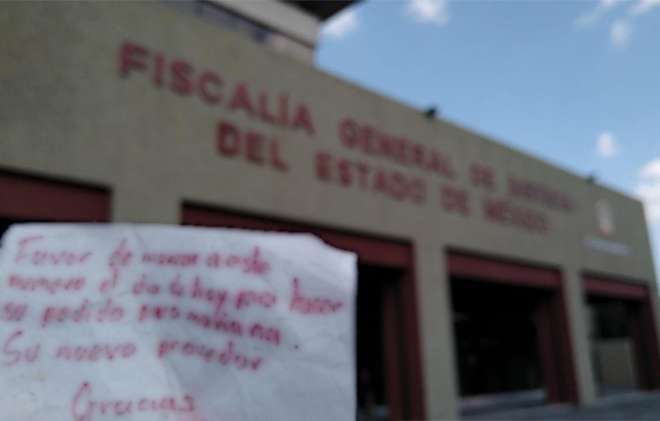 FISCALÍA GENERAL DE JUSTICIA
DEL ESTADO DE MÉXICO
Favor de marcar a este
numero el dia de hoy para hacer
su pedido para mañana.
Su nuevo provedor
Gracias